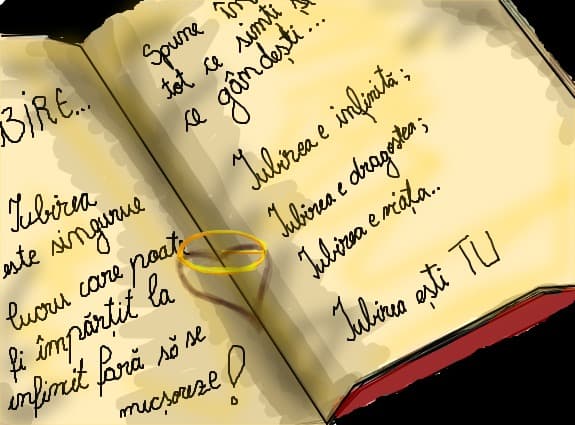 BIRE...
Iubirea
este singurul
lucru care poate
fi împărțit la
infinit fară să se
micșoreze!
Spune în
tot ce simti și
ce gândești...
Iubirea e infinită;
Iubirea e dragostea;
Iubirea e viața..
Iubirea ești TU